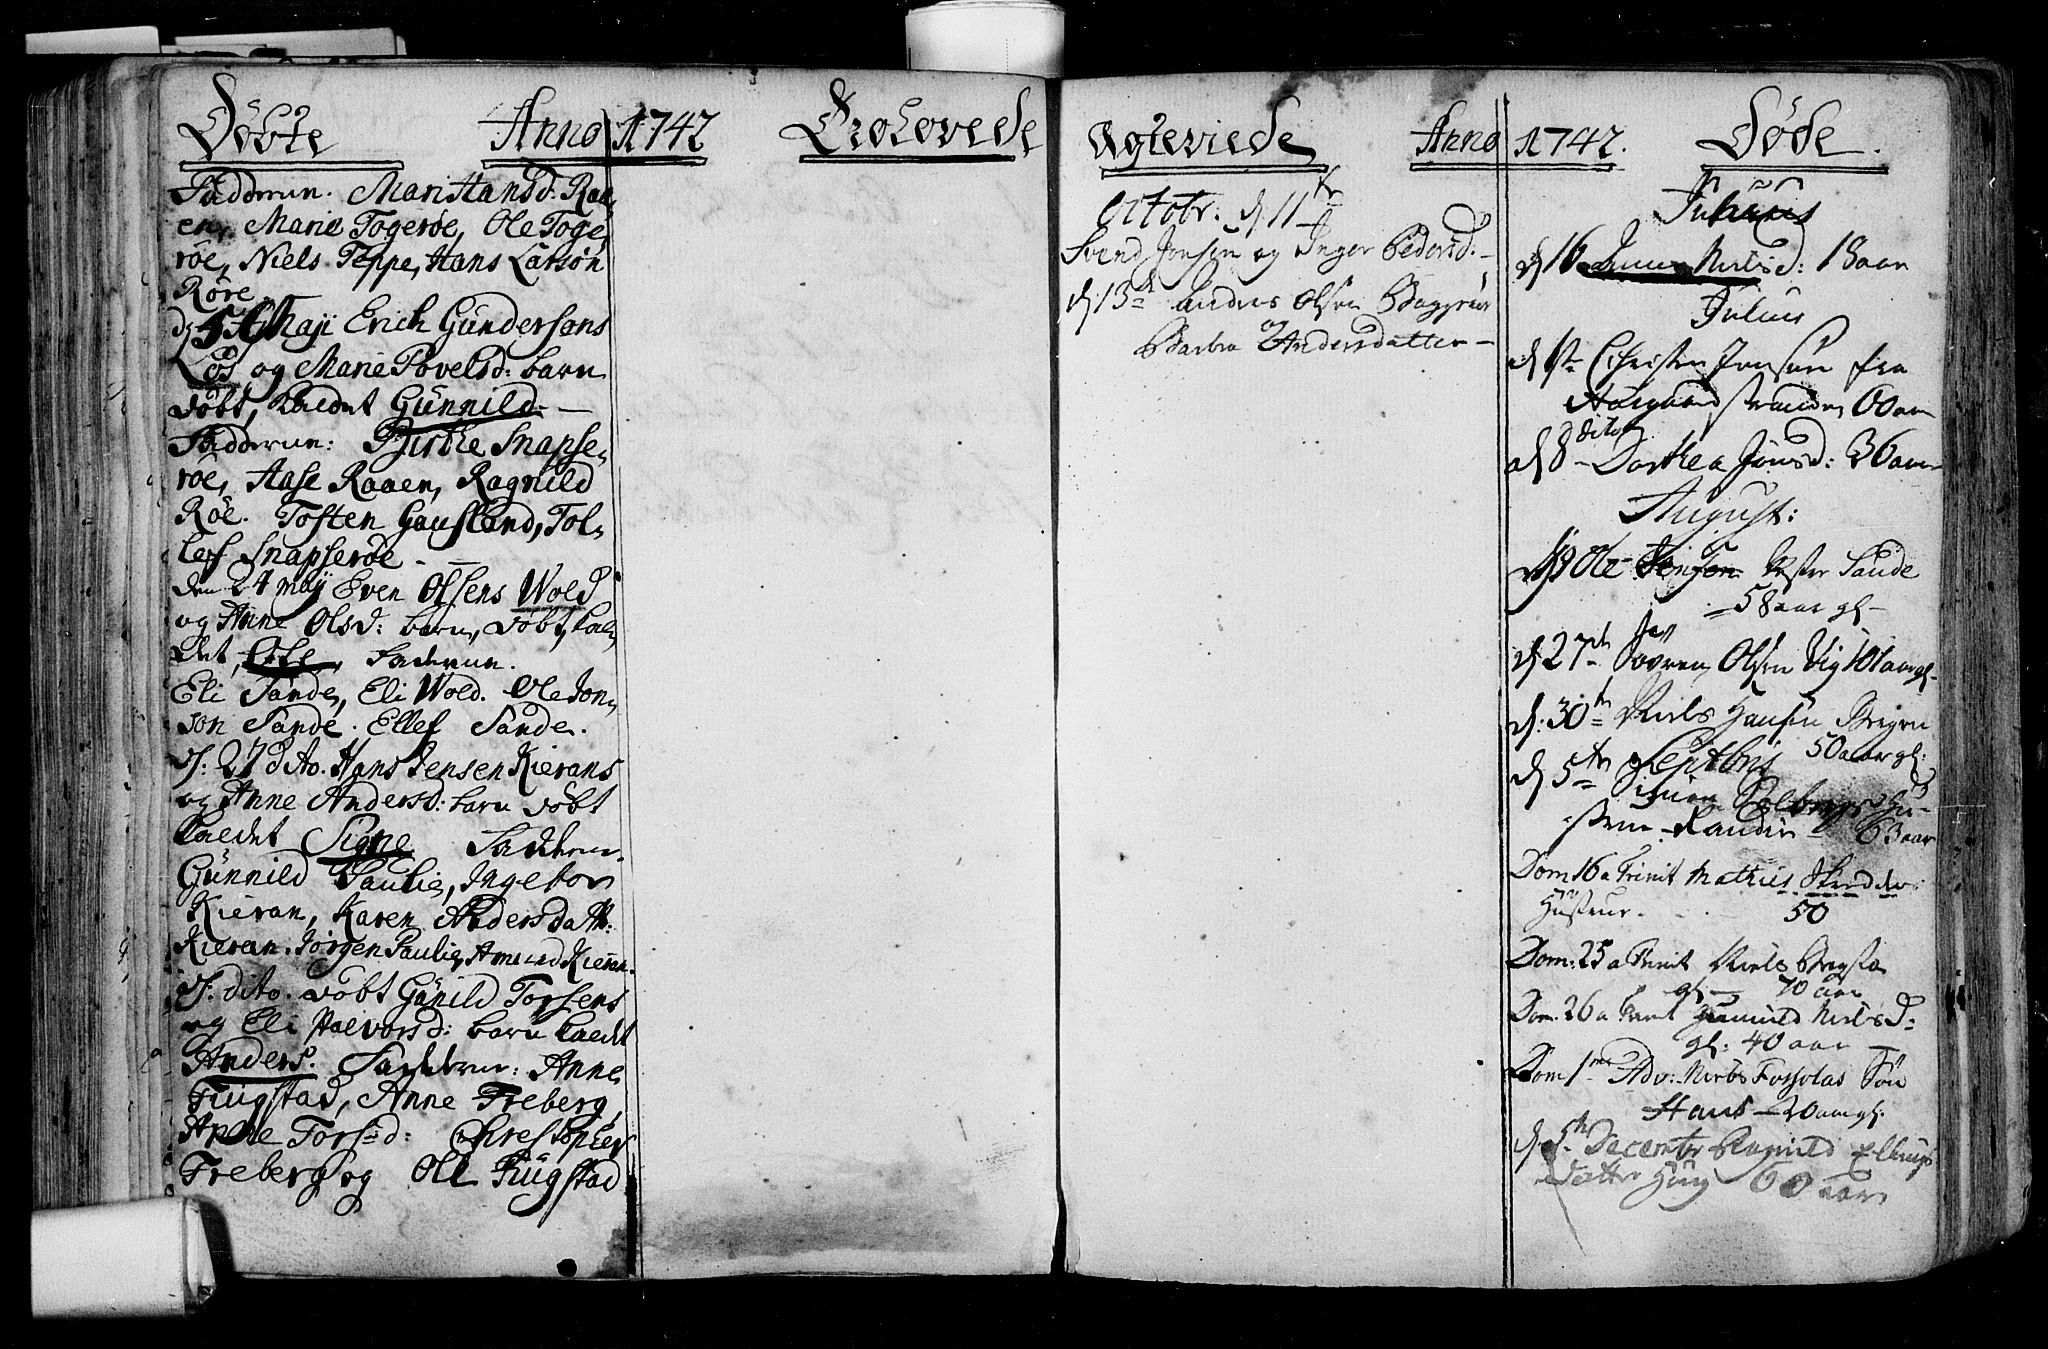 Döbte Anno 1742 Trolovede
Fadderne. Mari Hansd. Raa,
en, Marie Togeröe, Ole Toge,
röe, Niels Teppe, Hans Larsön
Röre
Maji Erich Gündersöns
Lös og Marie Povelsd: barn
döbt, kaldet Günnild. —
Fadderne: Birthe Snapse,
röe, Aase Raaen, Ragnild
Röe. Tosten Gausland, Tol,
lef Snapseröe —
den 24 maij Even Olsens Wold
og Anne Olsd: barn, döbt, kal,
det, Ole, Fadderne.
Eli Sande, Eli Wold. Ole Jon,
son Sande. Ellef Sande.
d: 27 dito. Hans Jensen Kierans
og Anne Andersd: barn döbt
kaldet Signe Fadderne.
Günnild Paulie, Ingebor
Kieran, Karen Andersdatt:
Kieran. Jörgen Paulie, Amund Kieran.
d: dito. döbt Günild Torsens
og Eli Halvorsd: barn kaldt
Anders. Fadderne: Anne
Fiugstad, Anne Freberg,
Anne Torsd: Christopher
Freberg og Ole Fiugstad
Ægteviede Anno 1742. Döde.
Octobr: d 11
Svend Jonsen og Inger Pedersd: —
d 13de Anders Olsen
og
Barbra Andersdatter —
Junius
d 16 Nielsd: 18 aar
Julius
d 1ste Christen Jonsen fra
Aasgaardstranden 60 aar
dito
d 8 — Dorthea Jönsd: 36 aar
August:
d 19 Ole Jensen Vester Sande
— 58 aar gl —
d 27de Sören Olsen Vig 101 aar gl.
d: 30te Niels Hansen Bryen
50 aar gl:
d 5te Septbris
Simen Solbergs Hu-
strue Randi — 63 aar
Dom 16 a Trinit Mathies Skredder
Hustrue. 50
Dom: 25 a Trinit Niels
gl — 70 aar
Dom. 26 a Trinit Gunnild NielsD:
gl: 40 aar —
Dom 1me Adv: Niels Fossolas Sön
Hans — 20 aar gl:
d 5te December Ragnild Ellings
datter Houg 60 aar